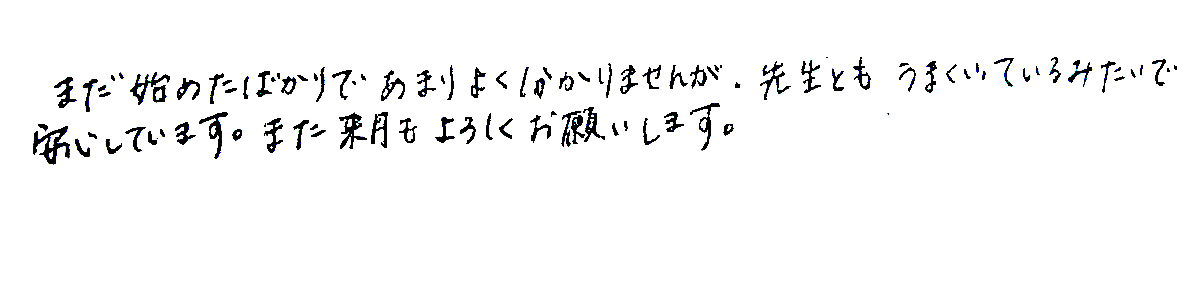 まだ始めたばかりであまりよく分かりませんが、先生ともうまくいっているみたいで
安心しています。また来月もよろしくお願いします。